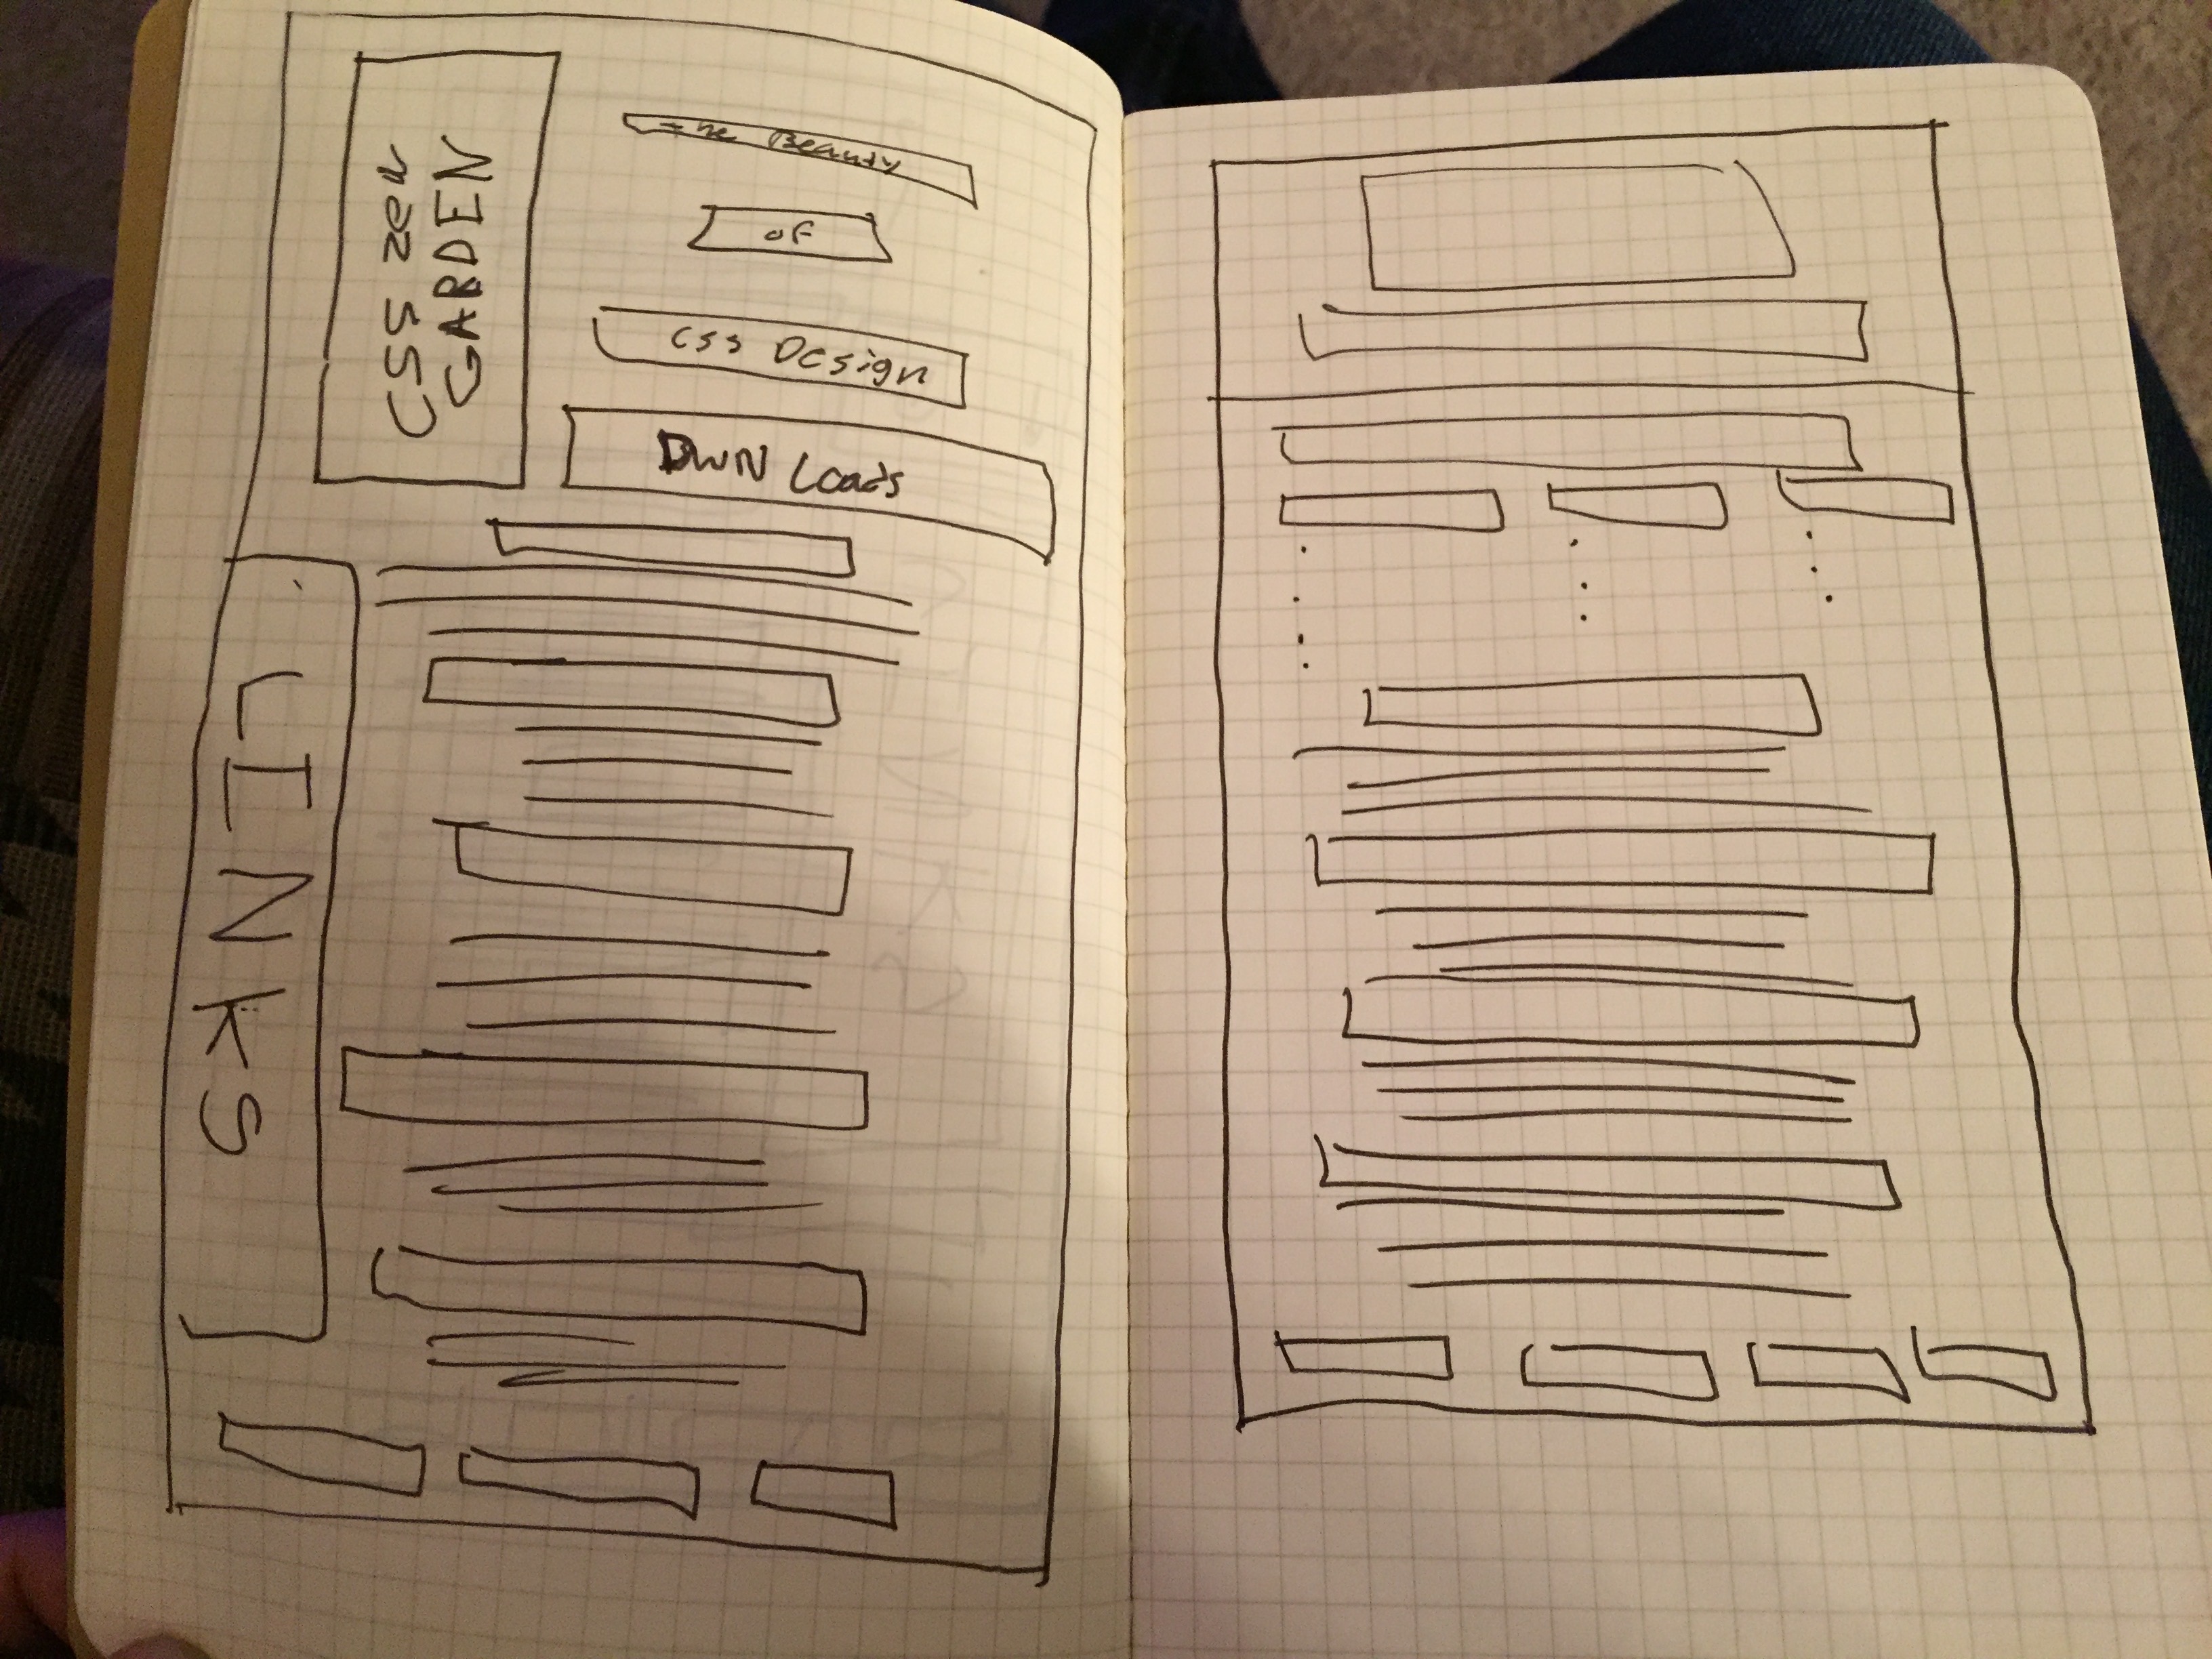 CSS zen
GARDEN
The Beauty
of
CSS Design
DWN Loads
LINKS